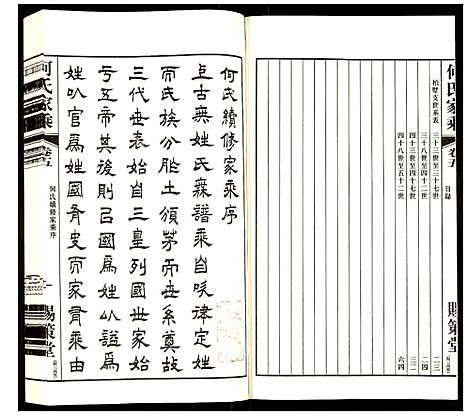 何氏家乘
卷五
目錄
賜策堂
柏墅支世系表
三十三世至三十七世
三十三世至四十七世
三十八世至四十二世
四十八世至五十二世
一
二四
三二
六四
何氏續修家乘序
上古無姓氏無譜乘自吹律定姓
而氏族分胙土頒茅而世系奠故
三代世表始自三皇列國世家始
于五帝其後則吕國為姓以諡為
姓以官為姓國有史而家有乘由
何氏家乘
卷五
何氏續修家乘序
一
賜策堂